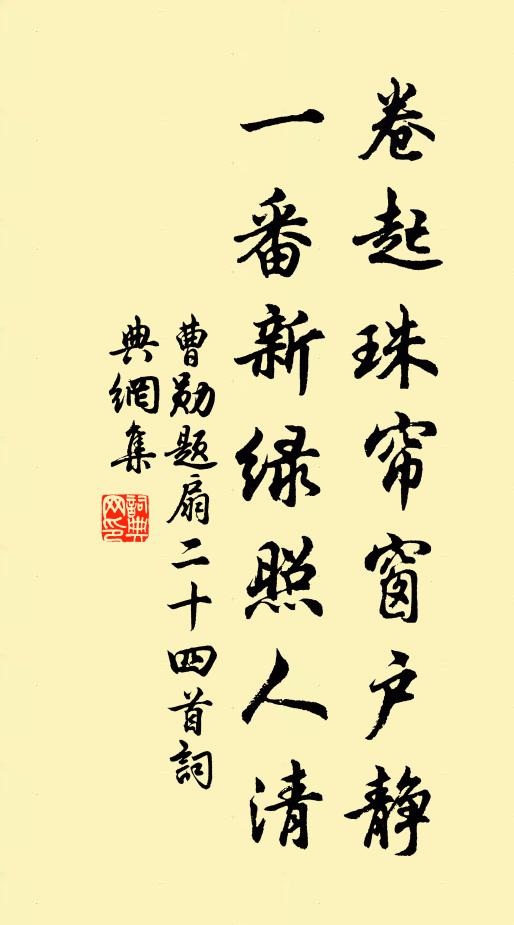 卷起珠帘窗户静
一番新绿照人清
曹勋题扇二十四首詞
典網集
詞典網印